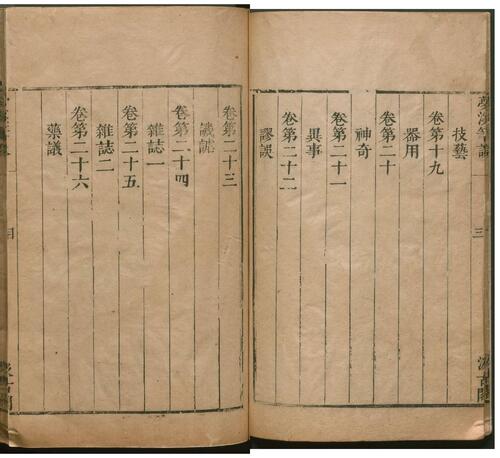 夢溪筆談
三
汲古閣
技藝
卷第十九
器用
卷第二十
神奇
卷第二十一
異事
卷第二十二
謬誤
卷第二十三
譏謔
卷第二十四
雜誌一
卷第二十五
雜誌二
卷第二十六
藥議